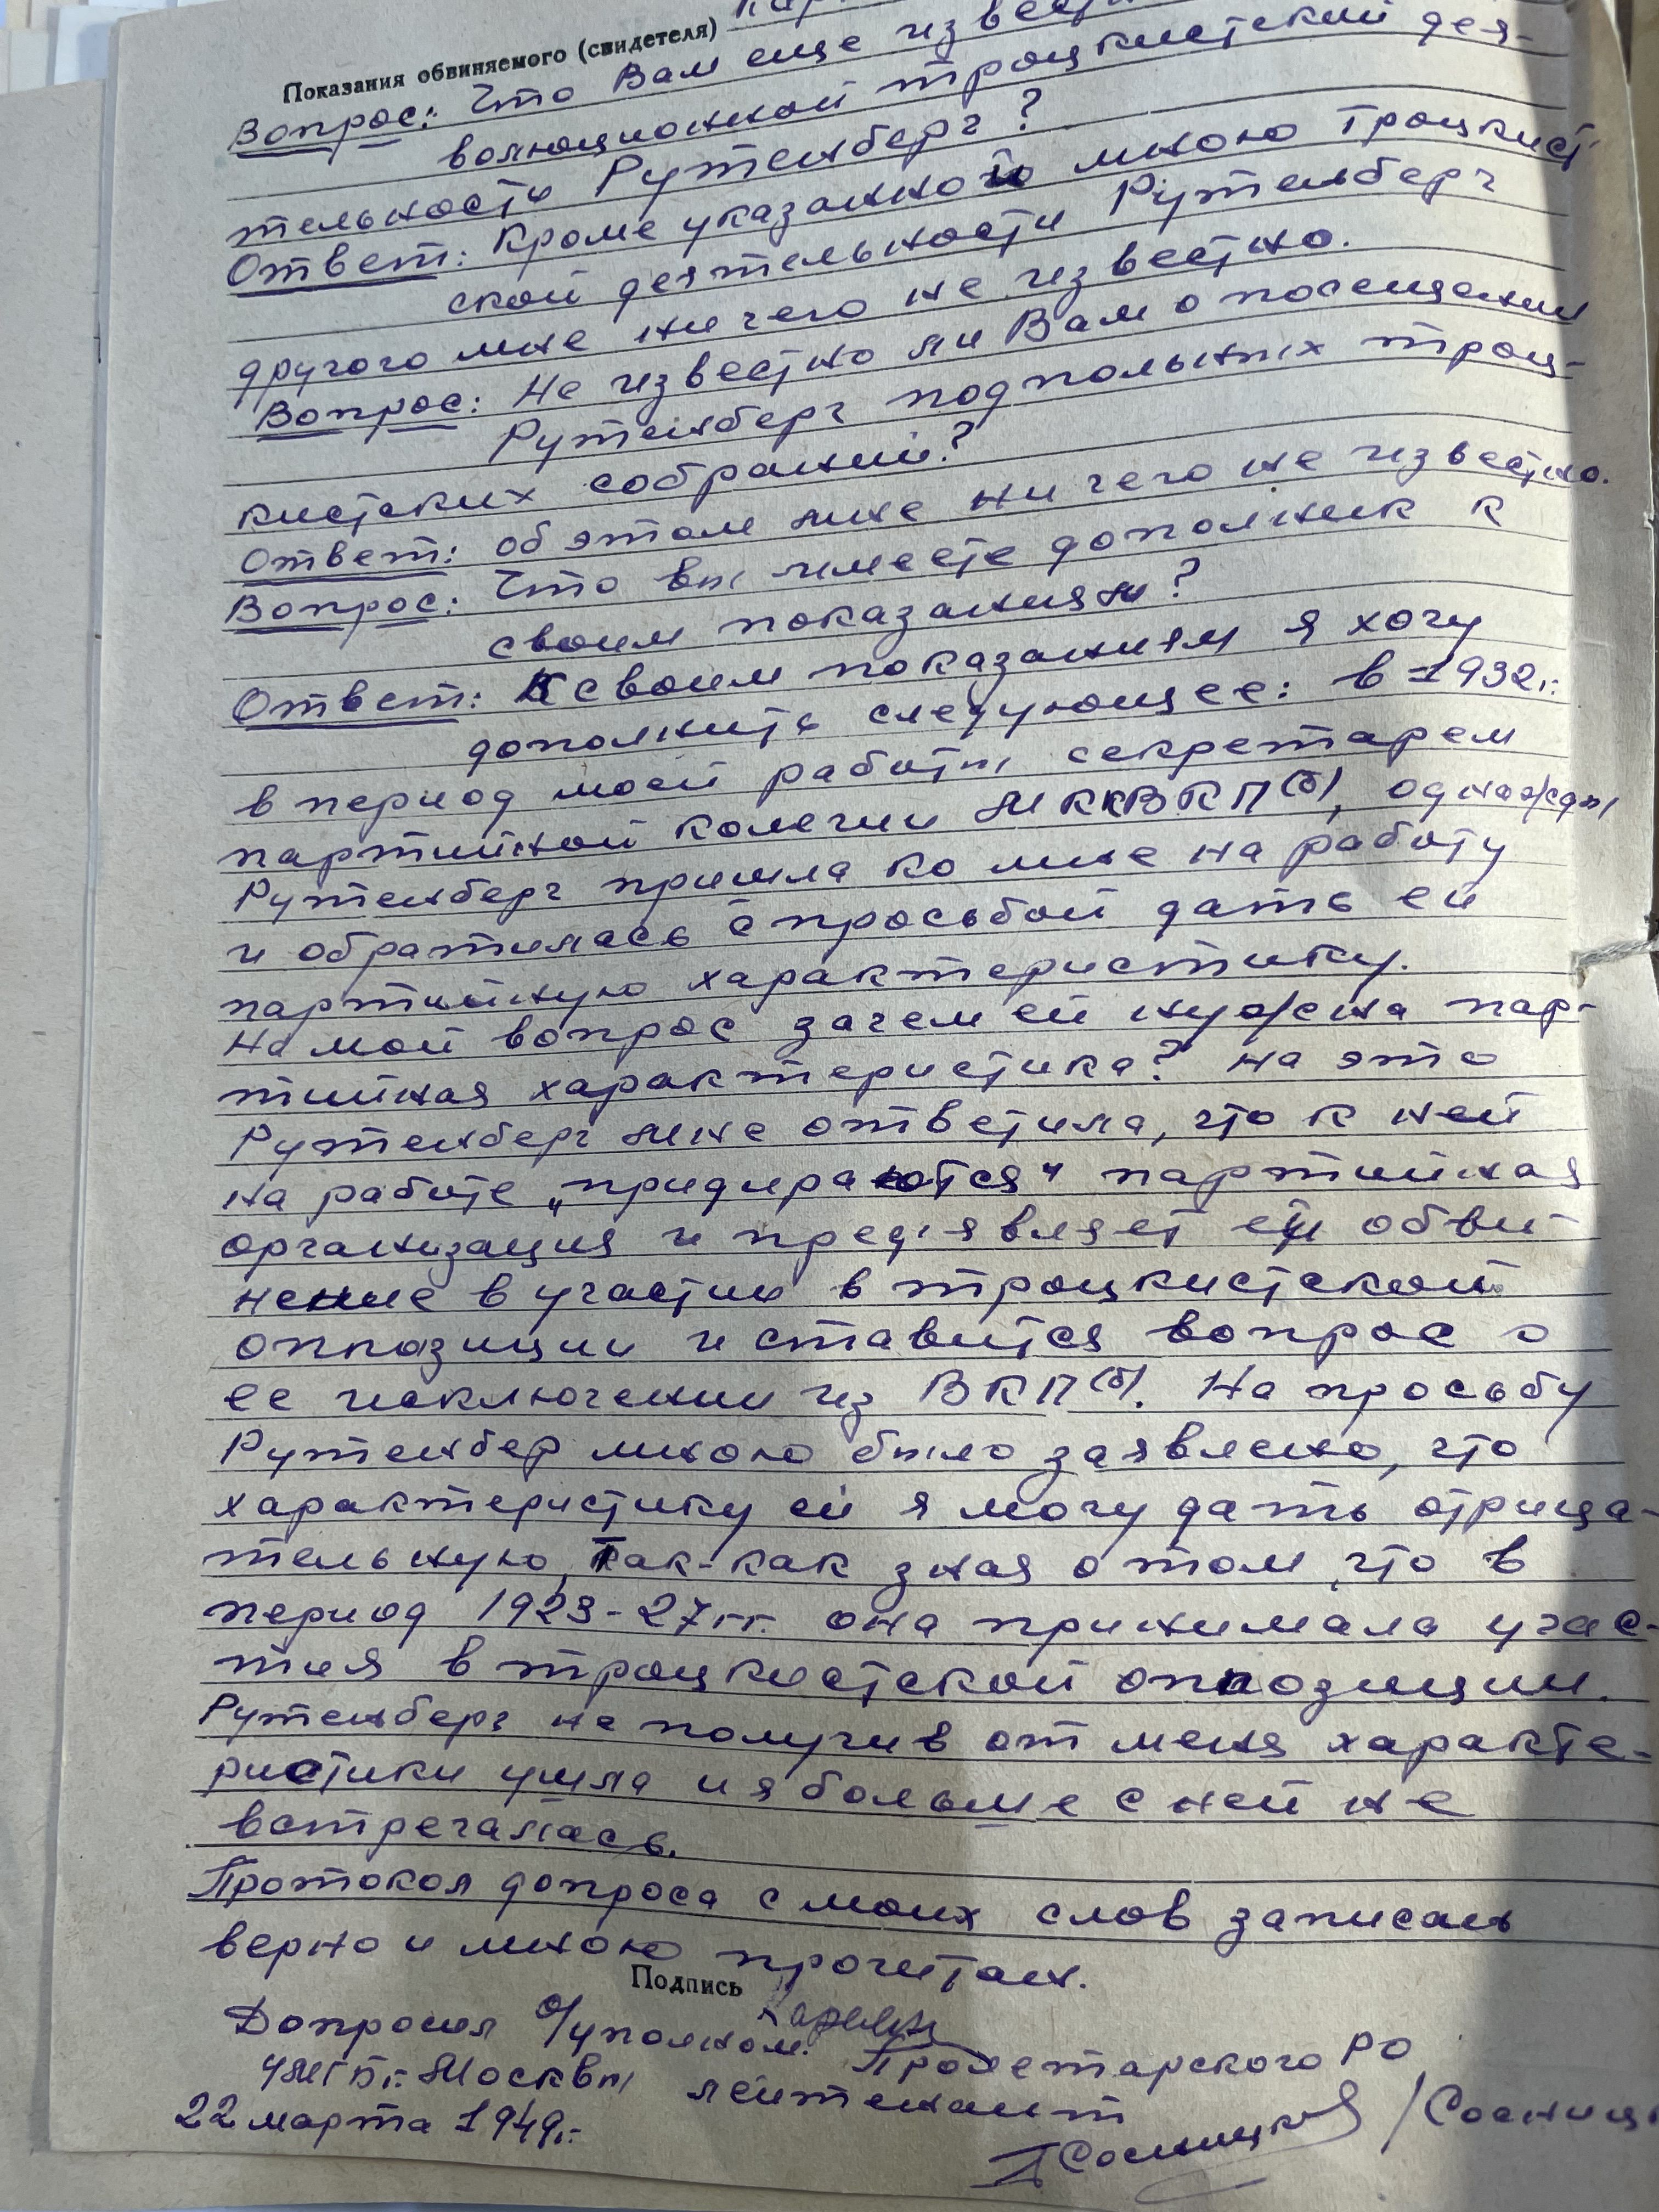 Показания обвиняемого (свидетеля)
Вопрос: Что Вам еще
волюционной троцкистской дея-
тельности Рутенберг?
Ответ: Кроме указанной мною троцкист-
ской деятельности Рутенберг
другого мне ничего не известно.
Вопрос: Не известно ли Вам о посещении
Рутенберг подпольных троц-
кистских собраний?
Ответ: об этом мне ничего не известно.
Вопрос: Что вы имеете дополник к
своим показаниям?
Ответ: К своим показаниям я хочу
дополнить следующее: в 1932г.
в период моей работы секретарем
партийной колегии МККВКП(б), однажды
Рутенберг пришла ко мне на работу
и обратилась с просьбой дать ей
партийную характеристику.
На мой вопрос зачем ей нужна пар-
тийная характеристика? на это
Рутенберг мне ответила, что к ней
на работе „придираются" партийная
организация и предъявляет ей обви-
нение в участии в троцкистской
оппозиции и ставится вопрос о
ее исключении из ВКП(б). На просьбу
Рутенбер мною было заявлено, что
характеристику ей я могу дать отрица-
тельную, так-как зная о том, что в
период 1923-27гг. она принимала учас-
тия в троцкистской оппозиции.
Рутенберг не получив от меня характе-
ристики ушла и я больше с ней не
встречалась.
Протокол допроса с моих слов записан
верно и мною прочитан.
Подпись
Допросил о/уполном. Пролетарского РО
УМГБ г. Москвы лейтенант
22 марта 1949г. Сосницкий /Сосниц